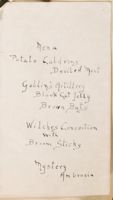 Menu
Potato Goblins,
Deviled Meat
Goblin's Artillery
Black Cat Jelly
Brown Bats
Witches Concoction
with
Broom Sticks
Mystery
Ambrosia